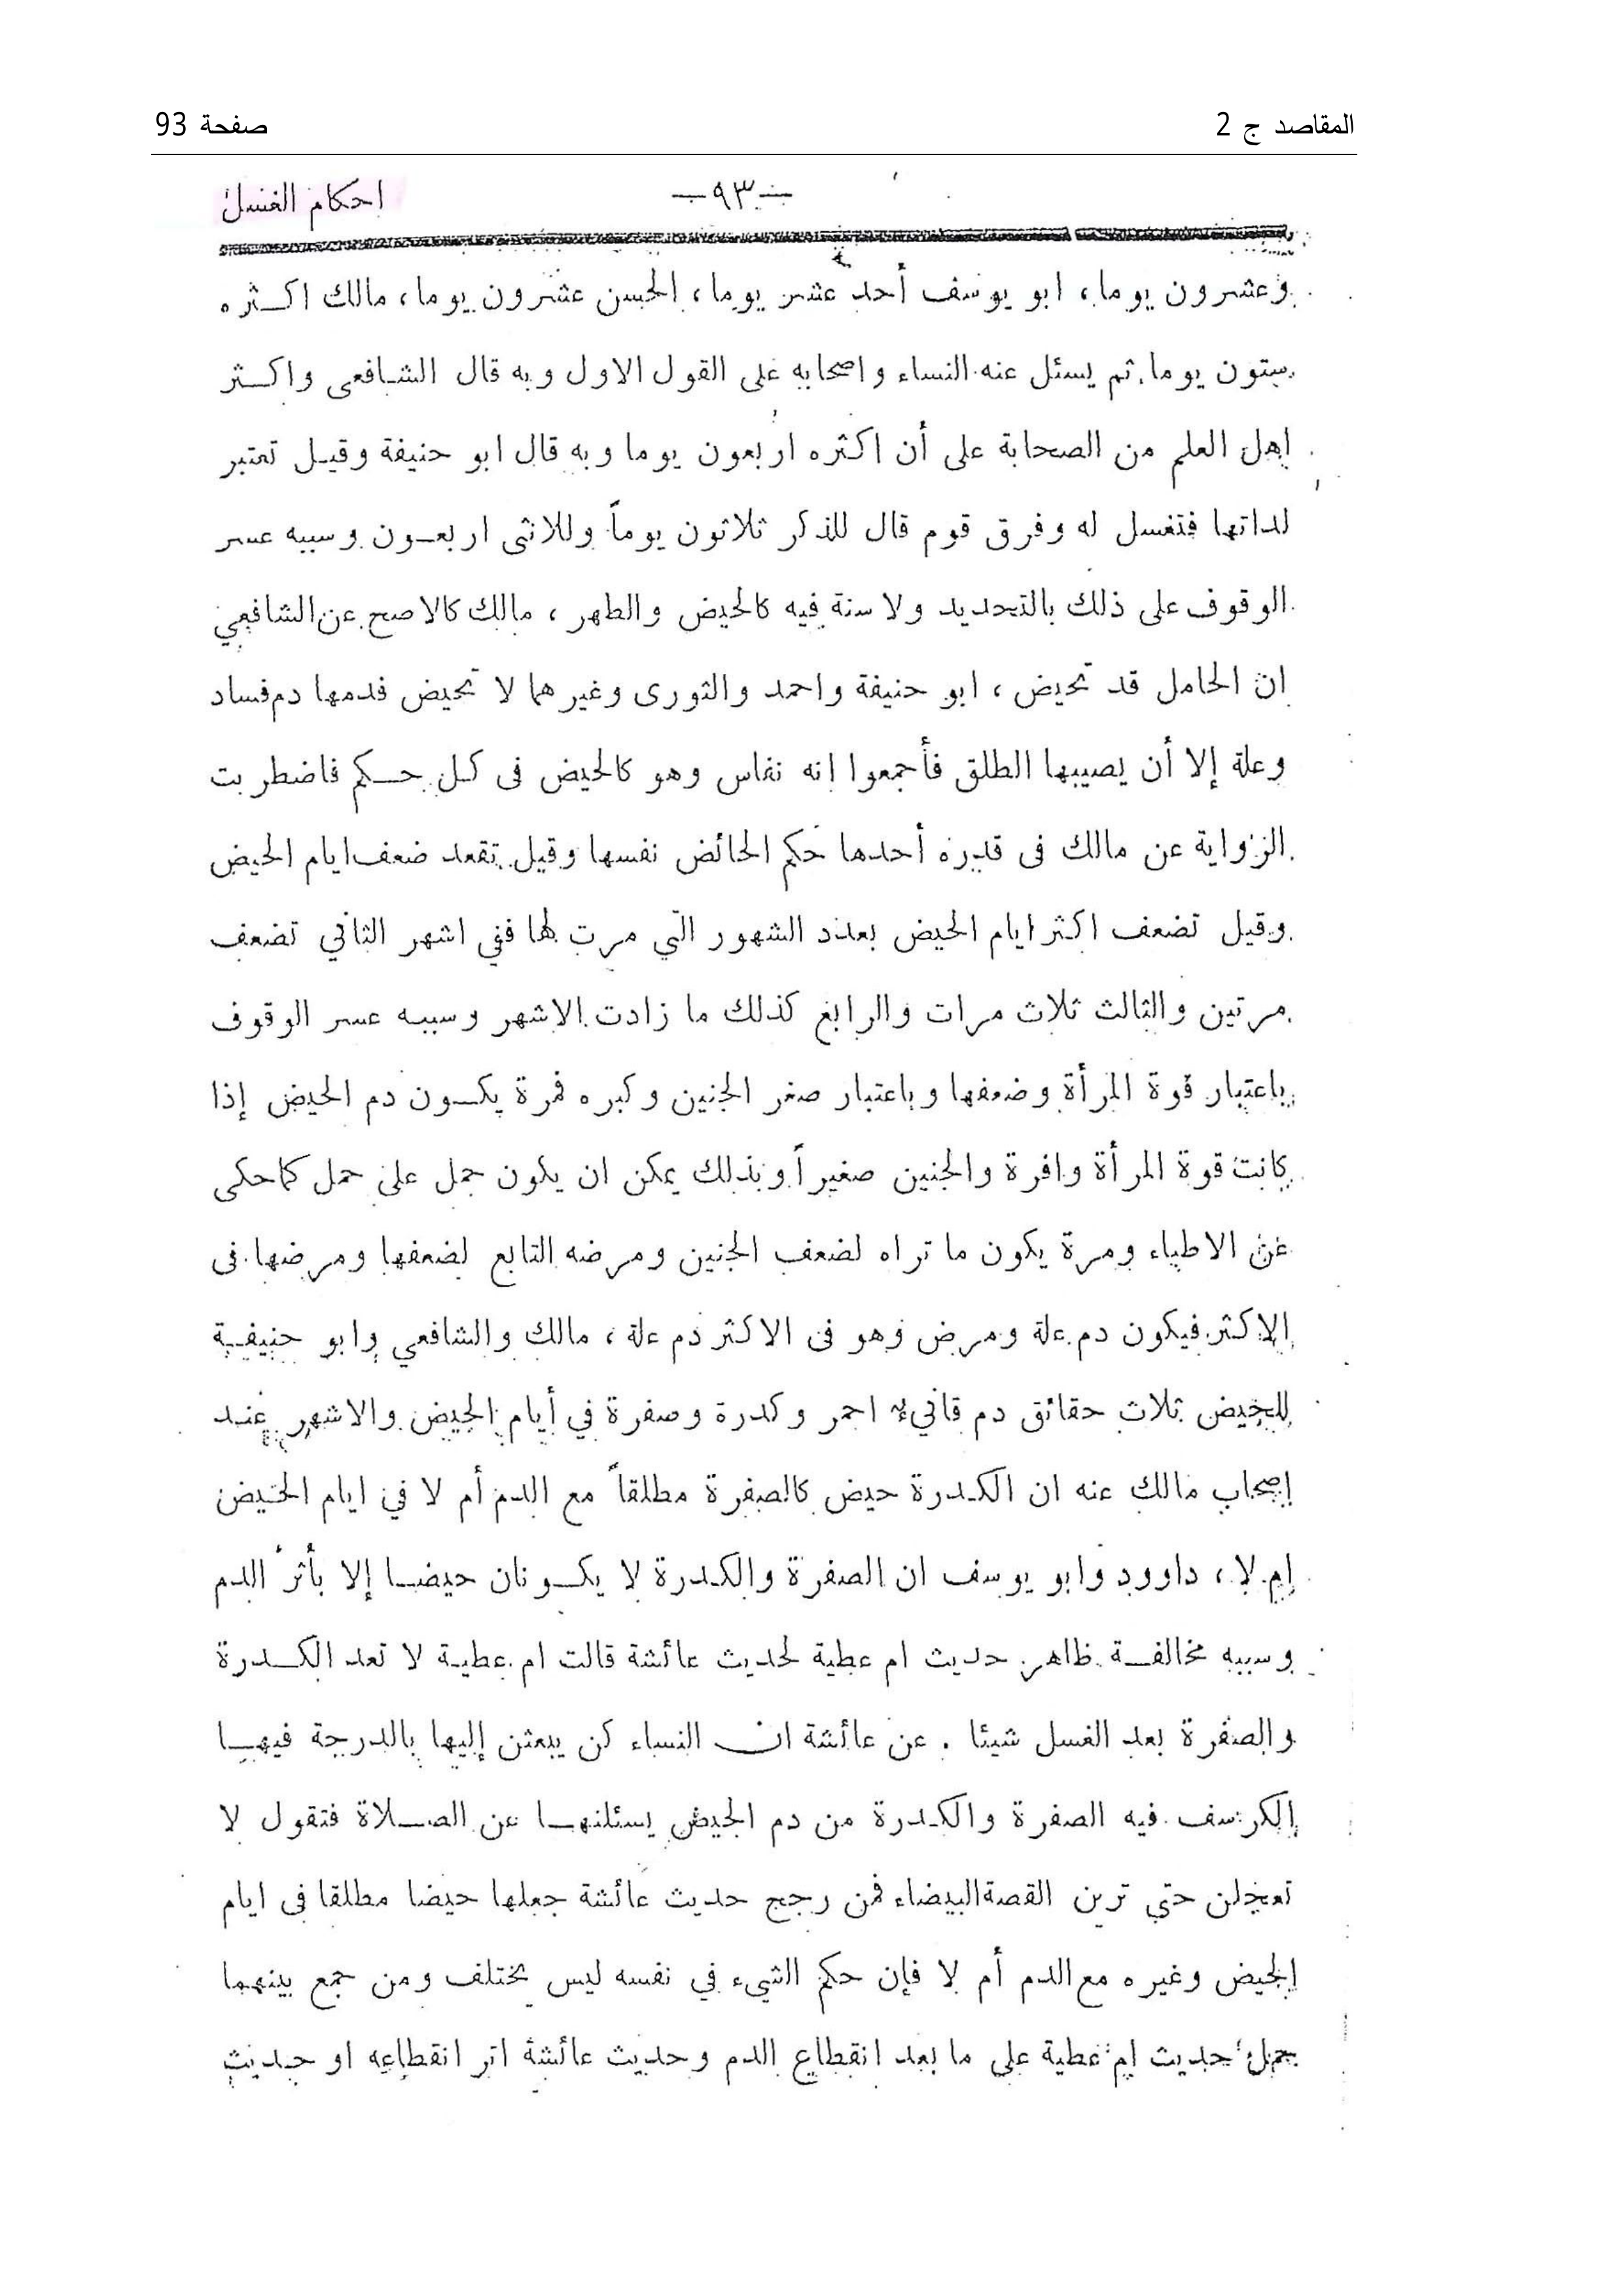 المقاصد ج 2 صفحة 93
احكام الغسل — ٩٣ —
وعشرون يوما، ابو يوسف أحد عشر يوما، الحسن عشرون يوما، مالك اكثره
ستون يوما. ثم يسئل عنه النساء واصحابه على القول الاول وبه قال الشافعى واكثر
اهل العلم من الصحابة على أن اكثره اربعون يوما وبه قال ابو حنيفة وقيل تعتبر
لداتها فتغسل له وفرق قوم قال للذكر ثلاثون يوماً وللانثى اربعون وسببه عسر
الوقوف على ذلك بالتحديد ولا سنة فيه كالحيض والطهر، مالك كالاصح عن الشافعي
ان الحامل قد تحيض، ابو حنيفة واحمد والثورى وغيرهما لا تحيض فدمها دم فساد
وعلة إلا أن يصيبها الطلق فأجمعوا انه نفاس وهو كالحيض فى كل حكم فاضطربت
الرواية عن مالك فى قدره أحدها حكم الحائض نفسها وقيل تقعد ضعف ايام الحيض
وقيل تضعف اكثر ايام الحيض بعدد الشهور التي مرت لها ففي اشهر الثاني تضعف
مرتين والثالث ثلاث مرات والرابع كذلك ما زادت الاشهر وسببه عسر الوقوف
باعتبار قوة المرأة وضعفها وباعتبار صغر الجنين وكبره فمرة يكون دم الحيض إذا
كانت قوة المرأة وافرة والجنين صغيراً وبذلك يمكن ان يكون حمل على حمل كما حكى
عن الاطباء ومرة يكون ما تراه لضعف الجنين ومرضه التابع لضعفها ومرضها فى
الاكثر فيكون دم علة ومرض وهو فى الاكثر دم علة، مالك والشافعي وابو حنيفة
للحيض ثلاث حقائق دم قانيء احمر وكدرة وصفرة في أيام الحيض والاشهر عند
إصحاب مالك عنه ان الكدرة حيض كالصفرة مطلقاً مع الدم أم لا في ايام الحيض
ام لا، داوود وابو يوسف ان الصفرة والكدرة لا يكونان حيضا إلا بأثر الدم
وسببه مخالفة ظاهر حديث ام عطية لحديث عائشة قالت ام عطية لا تعد الكدرة
والصفرة بعد الغسل شيئا . عن عائشة ان النساء كن يبعثن إليها بالدرجة فيها
الكرسف فيه الصفرة والكدرة من دم الحيض يسئلنها عن الصلاة فتقول لا
تعجلن حتي ترين القصة البيضاء فمن رجح حديث عائشة جعلها حيضا مطلقا فى ايام
الحيض وغيره مع الدم أم لا فإن حكم الشيء في نفسه ليس يختلف ومن جمع بينهما
حمل حديث ام عطية على ما بعد انقطاع الدم وحديث عائشة اثر انقطاعه او حديث